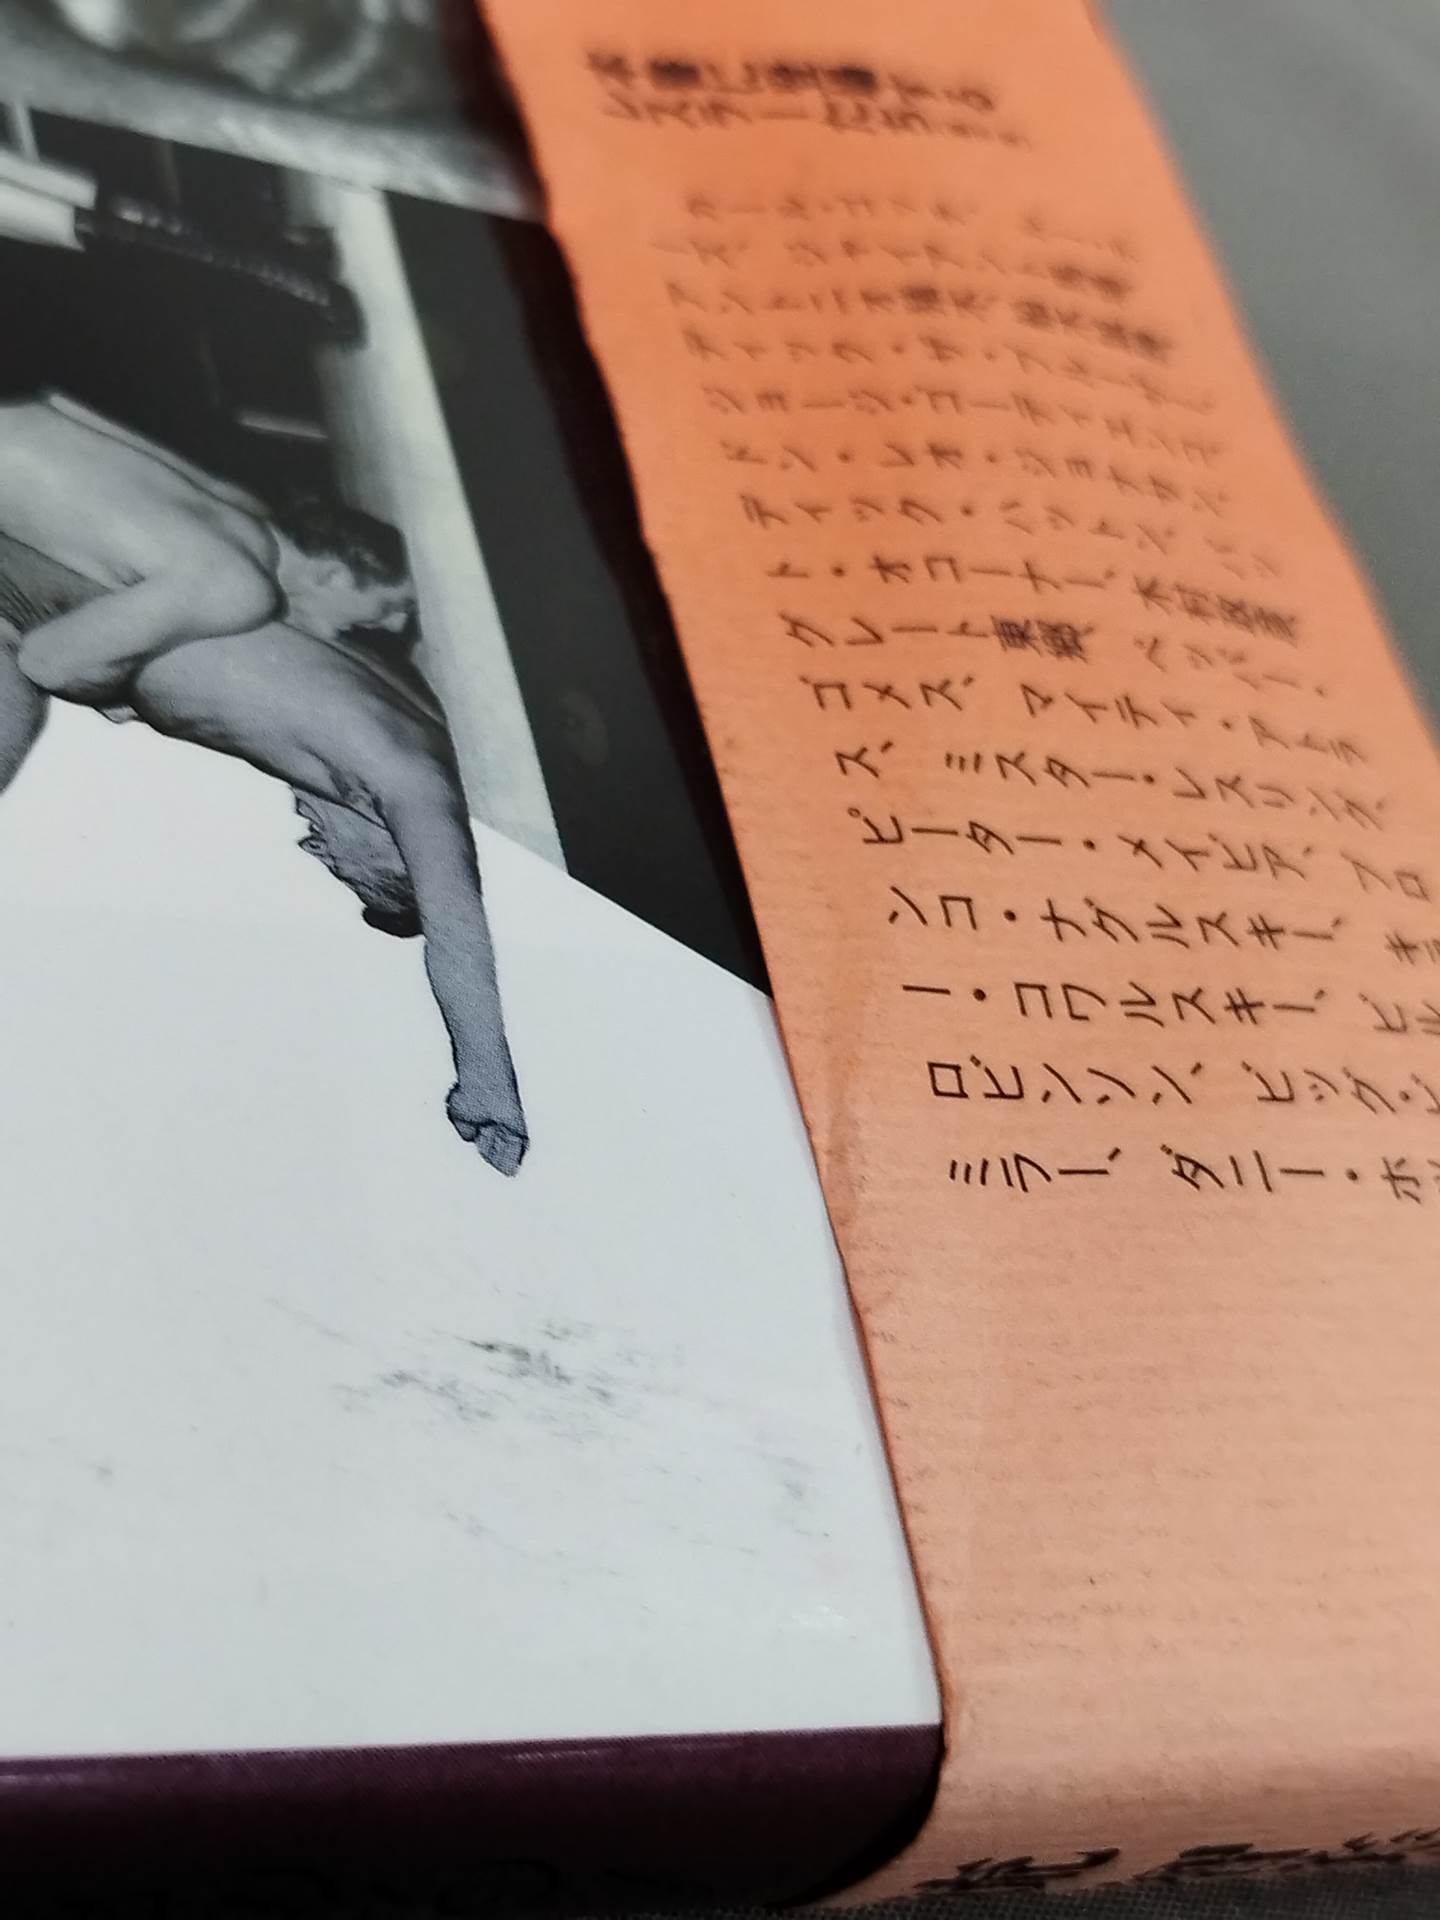 本書に登場する
レスラーたち
カール・ゴッチ、
アントニオ猪木、
ディック・ザ・ブルーザー、
ジョージ・ゴーディエンコ、
ドン・レオ・ジョナサン、
ディック・ハットン、パッ
ト・オコーナー、木村政彦、
グレート東郷、ペッパー・
ゴメス、マイティ・アトラ
ス、ミスター・レスリング、
ピーター・メイビア、ブロ
ンコ・ナグルスキー、キラ
ー・コワルスキー、ビル
ロビンソン、ビッグ・ビ
ミラー、ダニー・ホ